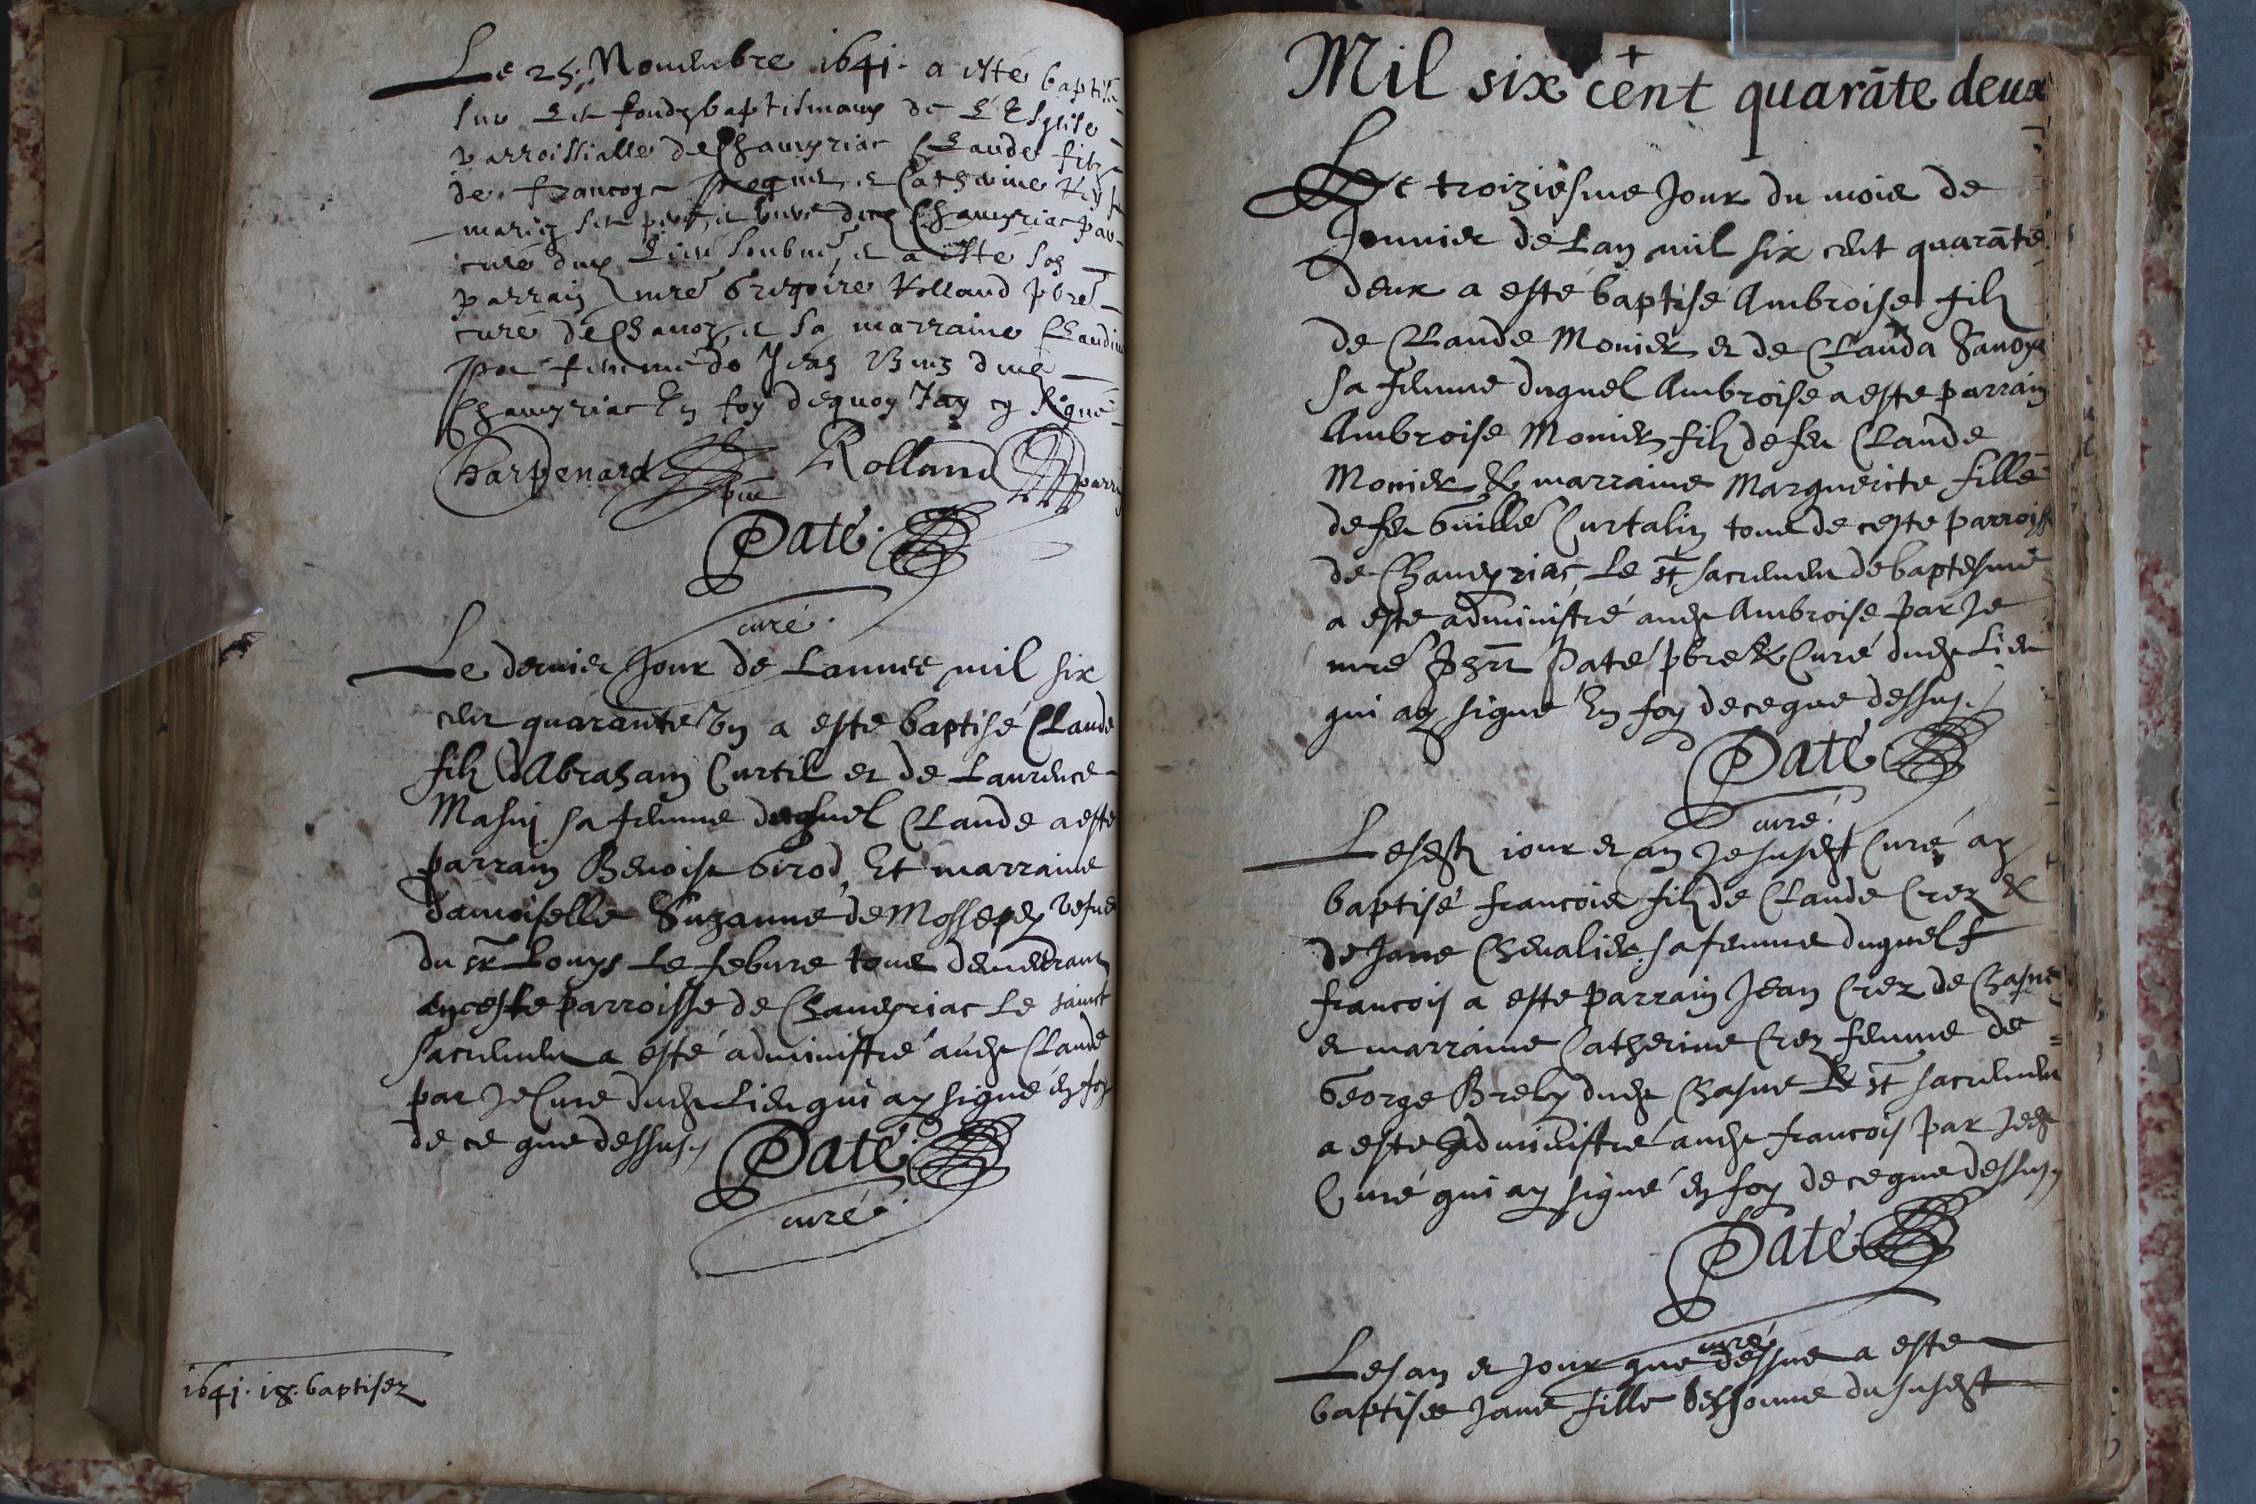 Le 25. Novembre 1641. a esté baptisé
sur les fondz baptismaux de l'Esglise
parroissialle de Chaveyriac Claude filz
de francoys et Catherine
mariez ses pere et mere dud Chaveyriac par
curé dud lieu soubné, et a esté son
parrain mre Gregoire Rolland pbre
curé de Chanoz, et sa marraine Claudine
femme de Jean dud
Chaveyriac En foy dequoy Jay cy signé
Charpenard Rolland parrin
Paté
curé.
Le dernier Jour de Lannee mil six
cent quarante Un a esté baptisé Claude
filz d'Abraham Curtil et de Laurence
sa femme duquel Claude a esté
parrain Benoist Girod, Et marraine
damoiselle Suzanne de vefue
du sr Louys Le febure tous demeurant
en ceste parroisse de Chaveyriac Le sainct
sacrement a esté administré audt Claude
par Je Curé dudt Lieu qui ay signé en foy
de ce que dessus
Paté
curé.
1641. 18. baptisez
Mil six cent quarāte deux
Le troiziesme Jour du mois de
Janvier de Lan mil six cent quarāte
deux a esté baptisé Ambroise filz
de Claude Monier et de Clauda Savoye
sa femme duquel Ambroise a esté parrain
Ambroise Monier filz de feu Claude
Monier & marraine Marguerite fille
de feu Guille Curtalin tous de ceste parroisse
de Chaveyriac, Le st sacrement de baptesme
a esté administré audt Ambroise par Je
mre Paté pbre & Curé dudt Lieu
qui ay signé En foy de ce que dessus.
Paté
curé.
Lesdt jour et an Je susdt Curé ay
baptisé francois filz de Claude Crez &
de Jane Chevalier sa femme duquel f
francois a esté parrain Jean Crez de Chasne
et marraine Catherine Crez femme de
George Brely dudt Chasne Le st sacrement
a esté Administré audt francois par Jedt
Curé qui ay signé en foy de ce que dessus
Paté
curé
Les an et Jour que dessus a esté
baptisée Jane fille du susdt